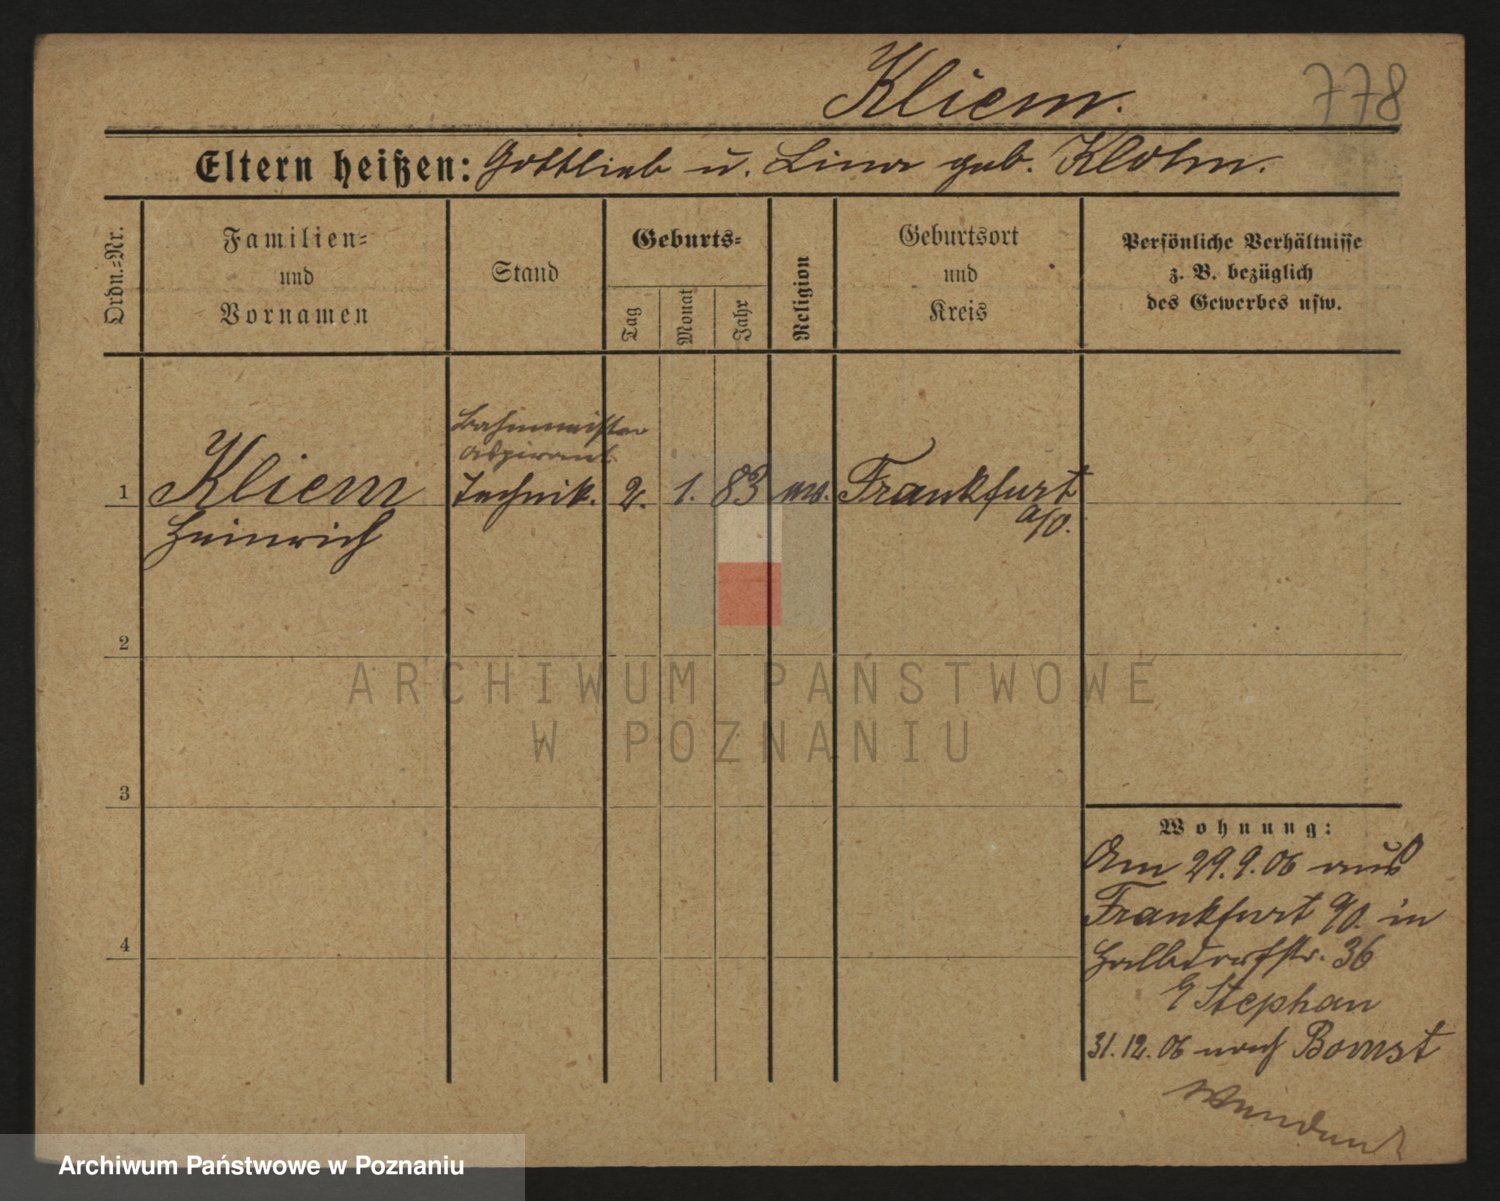 Kliem.
778
Eltern heißen: Gottlieb u. Lina geb. Klohn.
Ordn.-Nr.
Familien-
und
Vornamen
Stand
Geburts-
Tag
Monat
Jahr
Religion
Geburtsort
und
Kreis
Persönliche Verhältnisse
z. B. bezüglich
des Gewerbes usw.
Bahnmeister
aspirant
1 Kliem Technik. 2. 1. 83 ev. Frankfurt
a/O.
Heinrich
2
3
4
Wohnung:
Am 29.9.06 aus
Frankfurt a/O. in
36
Stephan
31.12.06 nach Bomst
ARCHIWUM PAŃSTWOWE
W POZNANIU
Archiwum Państwowe w Poznaniu